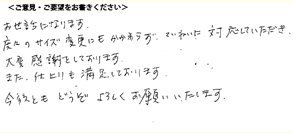 <ご意見・ご要望をお書きください>
お世話になります。
度々のサイズ変更にもかかわらず、ていねいな対応していただき、
大変感謝をしております。
また、仕上りも満足しております。
今後ともどうぞよろしくお願いいたします。